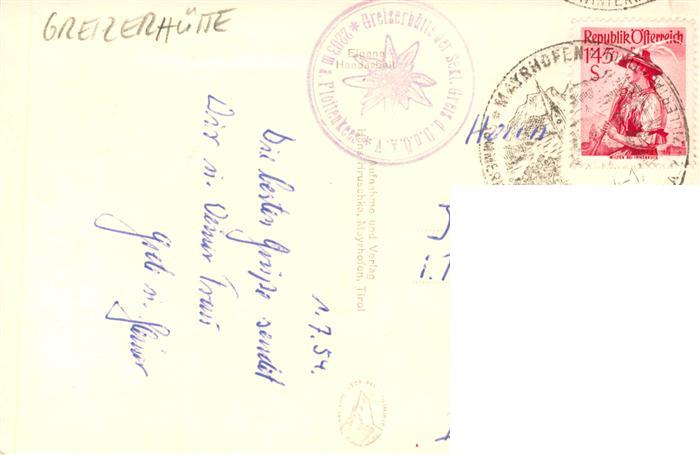 GREIZERHÜTTE
Greizerhütte der Sekt. Greiz d.D.u.Ö.A.V.
2203 m a. Floitenkees
Eigene
Handarbeit
Republik Österreich
1'45
S
WILTEN BEI INNSBRUCK
MAYRHOFEN
WINTER
Herrn
Aufnahme und Verlag
Hruschka, Mayrhofen, Tirol
1.7.54.
Die besten Grüße sendet
Dir u. Deiner Frau